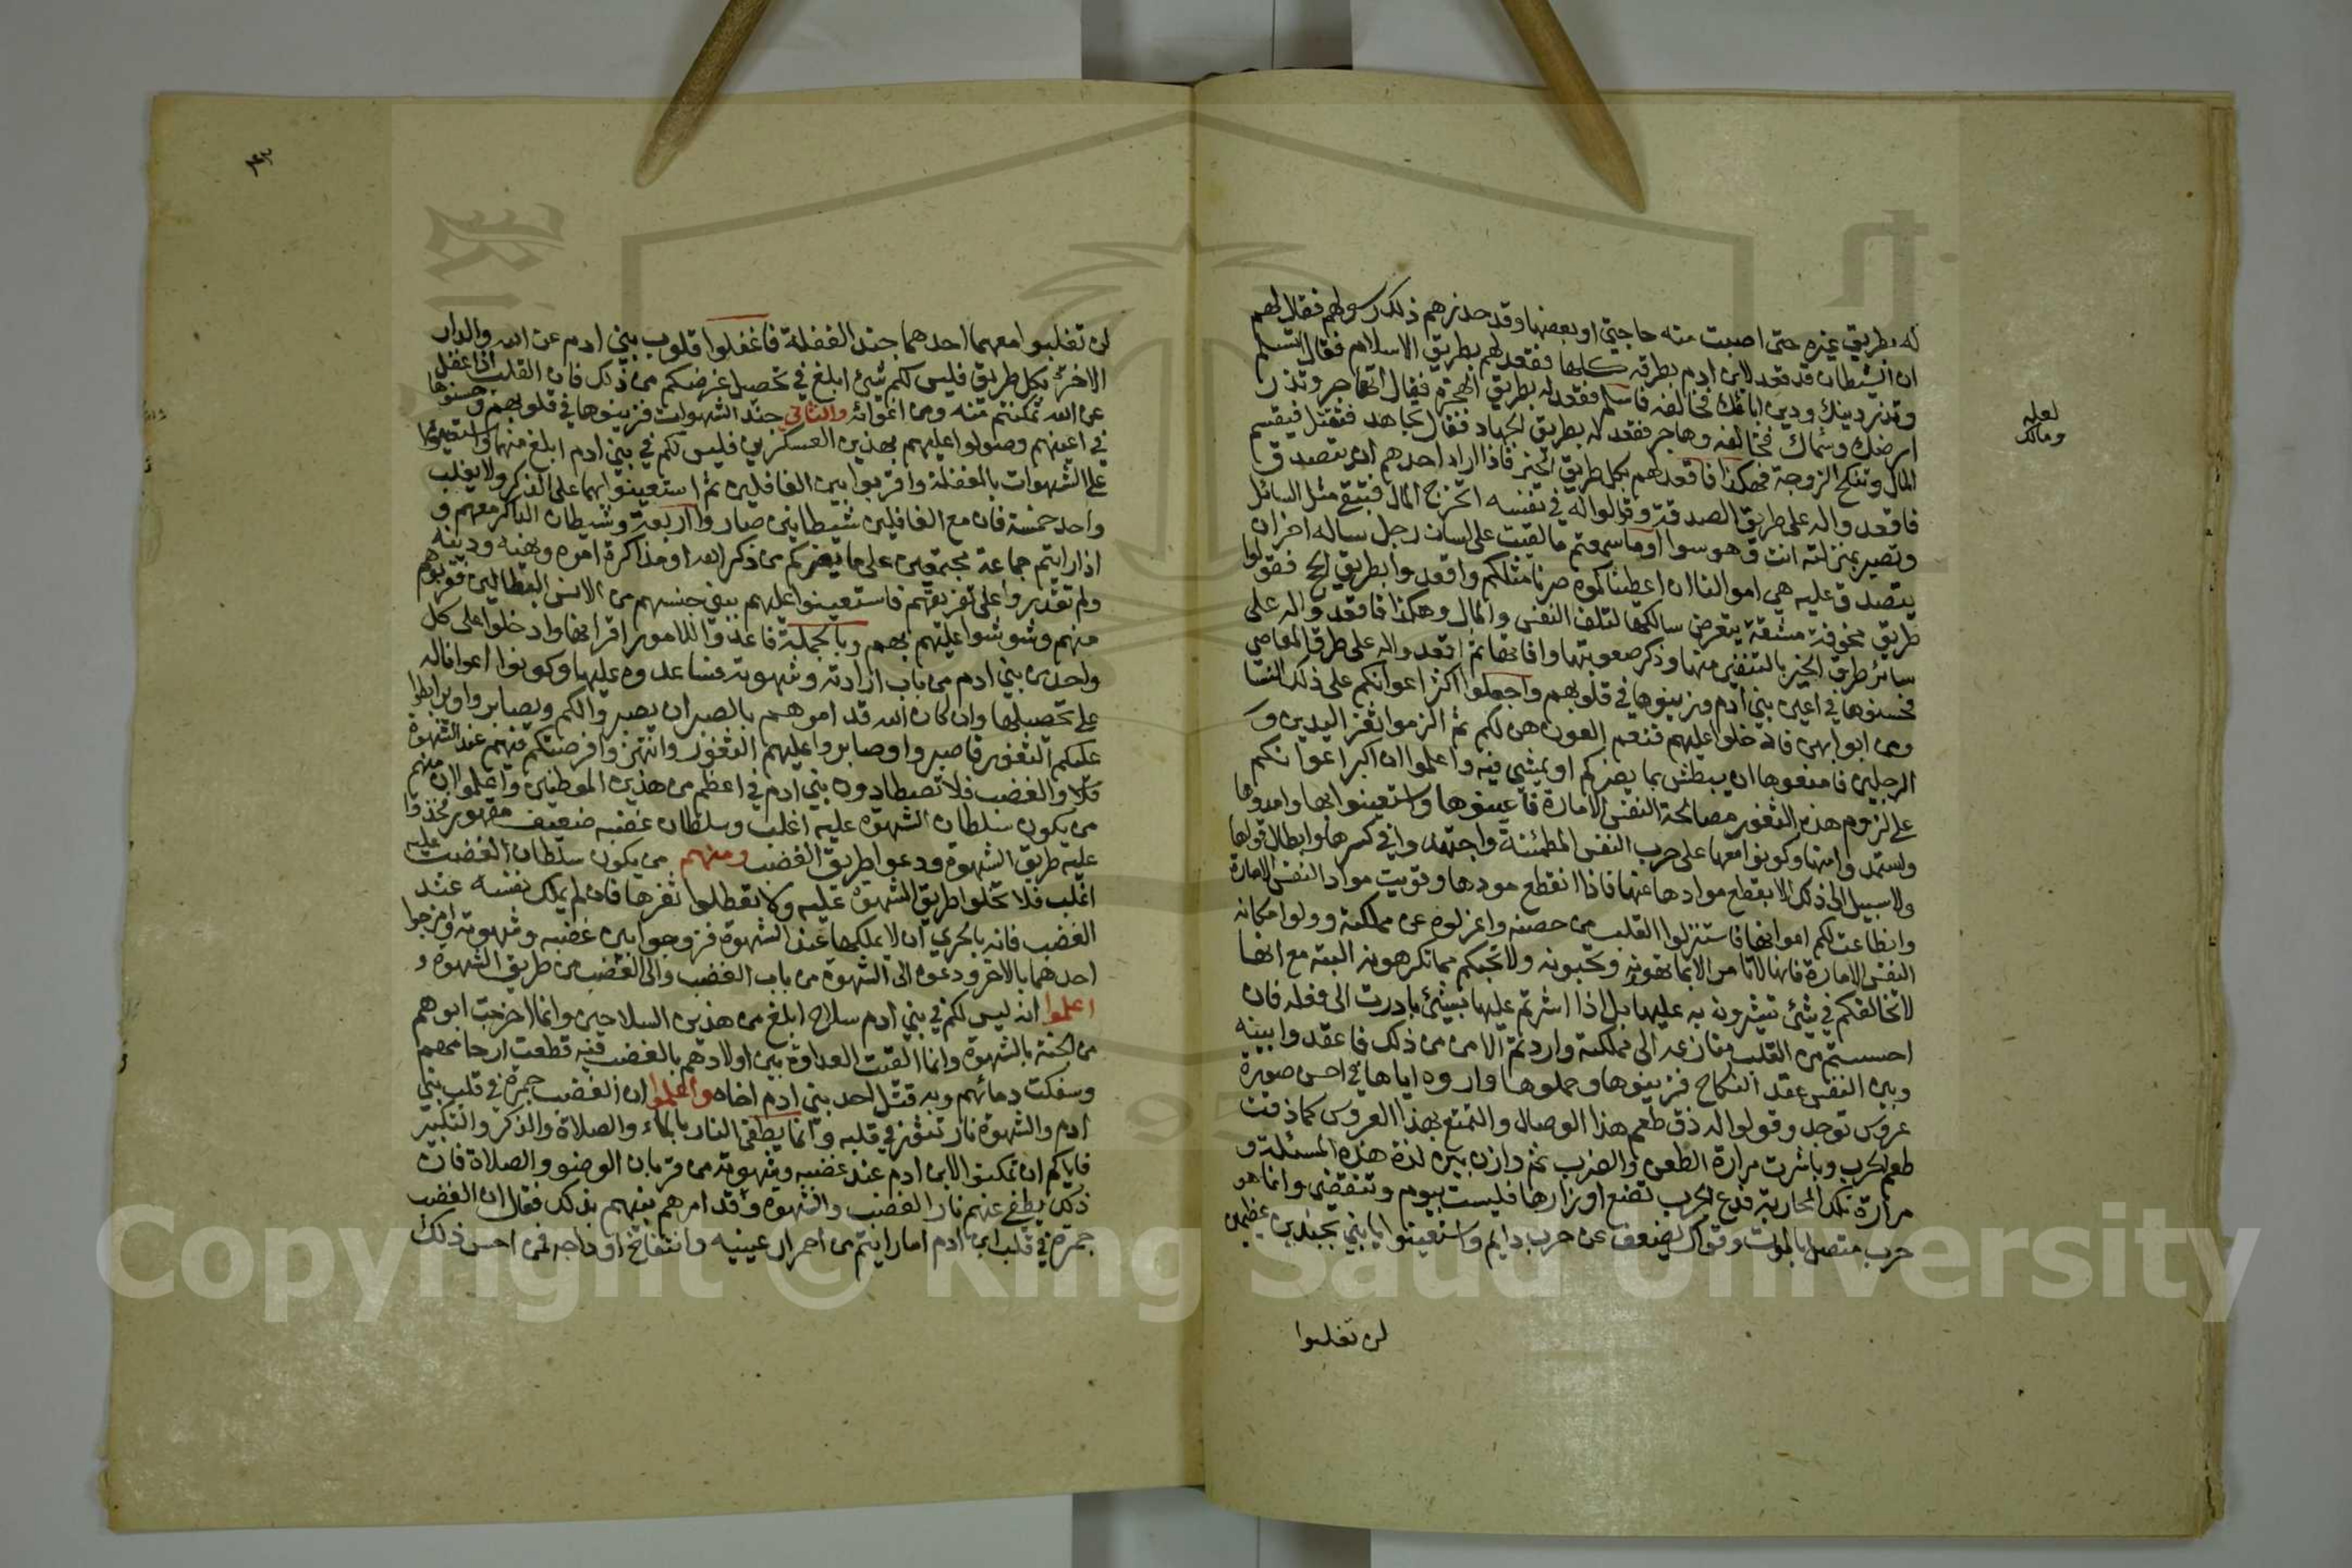 له بطريق غيره حتى اصبت منه حاجتي او بعضها وقد حذرهم ذلك رسولهم فقال لهم
ان الشيطان قد قعد لابن ادم بطرقه كلها فقعد لهم بطريق الاسلام فقال اتسلم
وتذر دينك ودين ابائك فخالفه فاسلم فقعد له بطريق الهجرة فيقال اتهاجر وتذر
ارضك وسماك فخالفه وهاجر فقعد له بطريق الجهاد فقال اتجاهد فتقتل فيقسم
المال وتنكح الزوجة فهكذا فاقعد لهم بكل طريق الخير فاذا اراد احدهم ان يتصدق
فاقعدوا له على طريق الصدقة وقولوا له في نفسه اتخرج المال فتبقى مثل السائل
وتصير بمنزلته انت وهو سوا اوما سمعتم ما القيت على لسان رجل ساله اخر ان
يتصدق عليه هي اموالنا ان اعطيناكموه صرنا مثلكم واقعدوا بطريق الحج فقولوا
طريق مخوفة مشقة يتعرض سالكها لتلف النفس والمال وهكذا فاقعدوا له على
سائر طرق الخير بالتنفير منها وذكر صعوبتها وافاتها ثم اقعدوا له على طرق المعاصي
فحسنوها في اعين بني ادم وزينوها في قلوبهم واجعلوا اكثر اعوانكم على ذلك النسا
ومن ابوابهن فادخلوا عليهم فنعم العون هن لكم ثم الزموا ثغر اليدين و
الرجلين فامنعوها ان يبطش بما يضركم او يمشي فيه واعلموا ان اكبر اعوانكم
على لزوم هذه الثغور مصالحة النفس الامارة فاعينوها واستعينوا بها وامدوها
واستمدوا منها وكونوا معها على حرب النفس المطمئنة واجتهدوا في كسرها وابطال قواها
ولا سبيل الى ذلك الا بقطع موادها عنها فاذا انقطع موادها وقويت مواد النفس الامارة
وانطاعت لكم اعوانها فاستنزلوا القلب من حصنه واعزلوه عن مملكته وولوا مكانه
النفس الامارة فانها لا تامر الا بما تهوونه وتحبونه ولا تجيكم بما تكرهونه البتة مع انها
لا تخالفكم في شئ تشيرونه به عليها بل اذا اشرتم عليها بشئ بادرت الى فعله فان
احسستم من القلب منازعة الى مملكته واردتم الامن من ذلك فاعقدوا بينه
وبين النفس عقد النكاح فزينوها وجملوها واروه اياها في احسن صورة
عروس توجد وقولوا له ذق طعم هذا الوصال والتمتع بهذا العروس كما ذقت
طعم الحرب وباشرت مرارة الطعن والضرب ثم وازن بين لذة هذه المسئلة و
مرارة تلك المحاربة فدع الحرب تضع اوزارها فليست بيوم وتنقضي وانما هو
حرب متصل بالموت وقواك تضعف عن حرب دايم واستعينوا يا بني بجندين عظيمين
لن تغلبوا
لعله
ومالك
لن تغلبوا معهما احدهما جند الغفلة فاغفلوا قلوب بني ادم عن الله والدار
الاخرة بكل طريق فليس لكم شئ ابلغ في تحصيل غرضكم من ذلك فان القلب اذا غفل
عن الله تمكنتم منه ومن اغوائه والثاني جند الشهوات فزينوها في قلوبهم وحسنوها
في اعينهم وصولوا عليهم بهذين العسكرين فليس لكم في بني ادم ابلغ منهما واستعينوا
على الشهوات بالغفلة واقربوا بين الغافلين ثم استعينوا بهما على الذكر ولا يغلب
واحد خمسة فان مع الغافلين شيطانين صاروا اربعة وشيطان الذاكر معهم و
اذا رايتم جماعة مجتمعين على ما يضركم من ذكر الله او مذاكرة امره ونهيه ودينه
ولم تقدروا على تفريقهم فاستعينوا عليهم ببني جنسهم من الانس البطالين فقربوهم
منهم وشوشوا عليهم بهم وبالجملة فاعدوا للامور اقرانها وادخلوا على كل
واحد من بني ادم من باب ارادته وشهوته فساعدوه عليها وكونوا اعوانا له
على تحصيلها وان كان الله قد امرهم بالصبر ان يصبروا لكم ويصابروا ويرابطوا
عليكم الثغور فاصبروا وصابروا عليهم الثغور وانتهزوا فرصتكم فيهم عند الشهوة
والغضب فلا تصطادون بني ادم في اعظم من هذين الموطنين واعلموا ان منهم
من يكون سلطان الشهوة عليه اغلب وسلطان غضبه ضعيف مقهور فخذوا
عليه طريق الشهوة ودعوا طريق الغضب ومنهم من يكون سلطان الغضب عليه
اغلب فلا تخلوا طريق الشهوة عليه ولا تعطلوا ثغرها فان لم يملك نفسه عند
الغضب فانه بالحري ان لا يملكها عند الشهوة فزوجوا بين غضبه وشهوته وامزجوا
احدهما بالاخر ودعوه الى الشهوة من باب الغضب والى الغضب من طريق الشهوة و
اعلموا انه ليس لكم في بني ادم سلاح ابلغ من هذين السلاحين وانما اخرجت ابوهم
من الجنة بالشهوة وانما القيت العداوة بين اولادهم بالغضب فبه قطعت ارحامهم
وسفكت دمائهم وبه قتل احد بني ادم اخاه واعلموا ان الغضب جمرة في قلب بني
ادم والشهوة نار تثور في قلبه وانما يطفى النار بالماء والصلاة والذكر والتكبير
فاياكم ان تمكنوا ابن ادم عند غضبه وشهوته من قربان الوضوء والصلاة فان
ذلك يطفي عنهم نار الغضب والشهوة وقد امرهم نبيهم بذلك فقال ان الغضب
جمرة في قلب ابن ادم اما رايتم من احمرار عينيه وانتفاخ اوداجه فمن احس ذلك